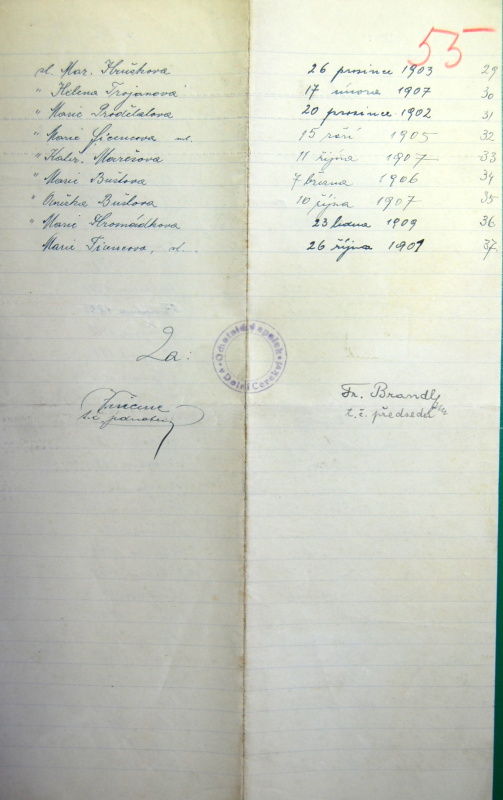 55
sl. Mar. Hrušková 26 prosince 1903 29
" Helena Trojanova 17 února 1907 30
" Marie 20 prosince 1902 31
" Marie ml. 15 září 1905 32
" Kateř. Marešova 11 října 1907 33
" Marie Buštova 7 března 1906 34
" Anežka Buštova 10 října 1907 35
" Marie Hromádkova 23 ledna 1909 36
Marie 26 října 1901 37
Za:
Omladinský spolek
Dolní Cerekv
Fr. Brandl
t.č. předseda
t.č. jednatel